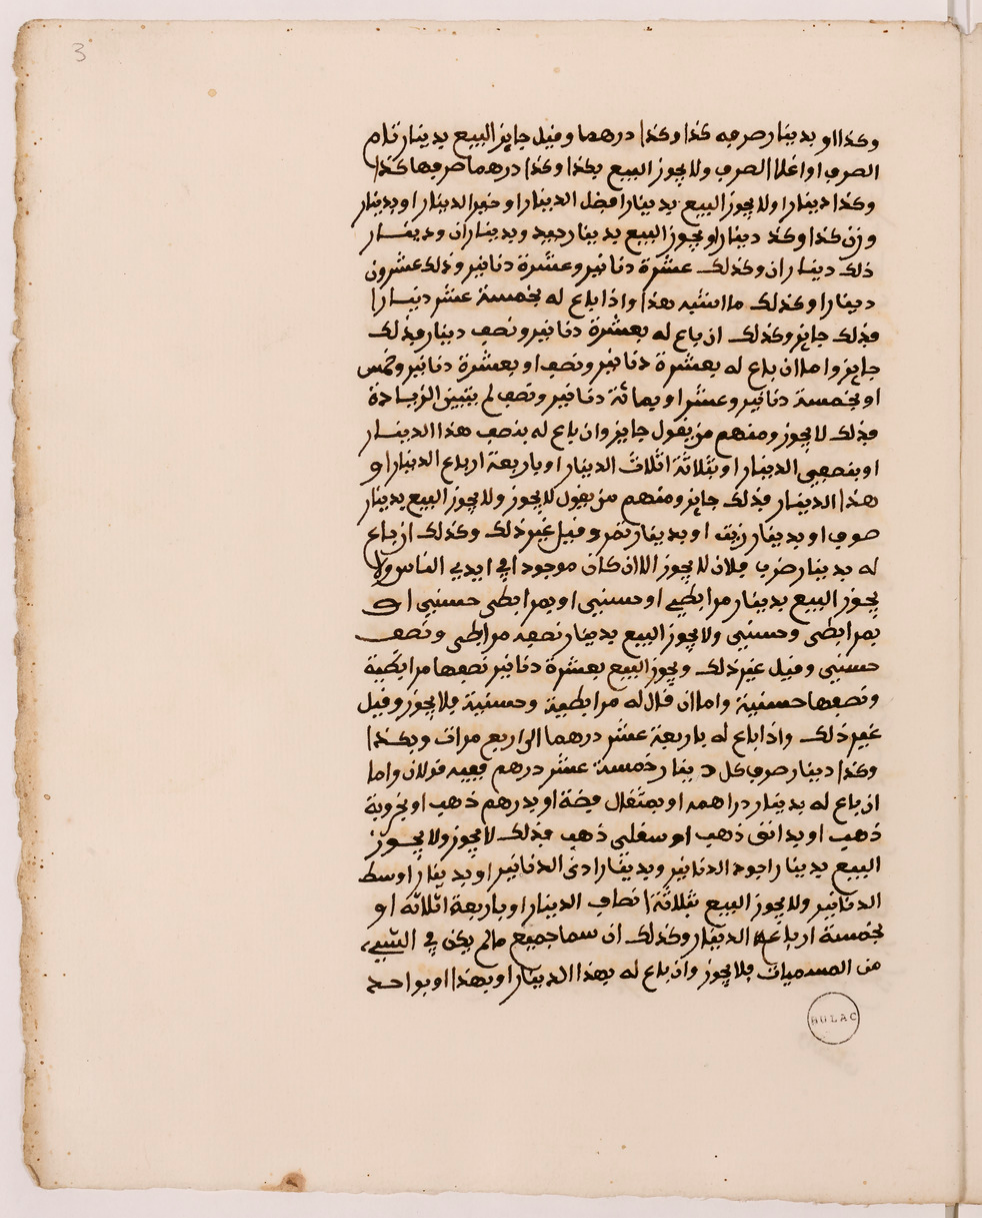 3
وكذا او بدينار صرفه كذا وكذا درهما وفيل جايز البيع بدينار تام
الصرف او اغلا الصرف ولا يجوز البيع بكذا وكذا درهما صرفها كذا
وكذا دينارا ولا يجوز البيع بدينار افضل الدينار او خير الدينار او بدينار
وزن كذا وكذ دينار او يجوز البيع بدينار جيد وبديناران ودينار
ذلك ديناران وكذلك عشرة دنانير وعشرة دنانير وذلك عشرون
دينارا وكذلك ما اشبه هذا واذا باع له بخمسة عشر دينارا
فذلك جايز وكذلك ان باع له بعشرة دنانير ونصف دينار فذلك
جايز واما ان باع له بعشرة دنانير ونصف او بعشرة دنانير وخمس
او بخمسة دنانير وعشر او بمائة دنانير ونصف لم يتبين الزيادة
فذلك لا يجوز ومنهم من يقول جايز وان باع له بنصف هذا الدينار
او بنصفي الدينار او بثلاثة اثلاث الدينار او باربعة ارباع الدينار او
هذا الدينار فذلك جايز ومنهم من يقول لا يجوز ولا يجوز البيع بدينار
صوف او بدينار زيت او بدينار تمر وفيل غير ذلك وكذلك ان باع
له بدينار ضرب فلان لا يجوز الا ان كان موجودا في ايدي الناس ولا
يجوز البيع بدينار مرابطي او حسنيى او بمرابطى حسنيى او
بمرابطى وحسنيى ولا يجوز البيع بدينار نصفه مرابطى ونصف
حسنيى وفيل غير ذلك ويجوز البيع بعشرة دنانير نصفها مرابطية
ونصفها حسنية واما ان قال له مرابطية وحسنية فلا يجوز وفيل
غير ذلك واذا باع له باربعة عشر درهما الى اربع مرات وبكذا
وكذا دينار صرف كل دينار خمسة عشر درهم ففيه قولان واما
ان باع له بدينار دراهمه او بمثقال فضة او بدرهم ذهب او بخروبة
ذهب او بدانق ذهب او سفلى ذهب فذلك لا يجوز ولا يجوز
البيع بدينار اجود الدنانير وبدينار ادنى الدنانير او بدينار اوسط
الدنانير ولا يجوز البيع بثلاثة انصاف الدينار او باربعة اثلاثه او
بخمسة ارباع الدينار وكذلك ان سما جميع ما لم يكن في الشيء
من المسميات فلا يجوز وان باع له بهذا الدينار او بهذا او بواحد
BULAC